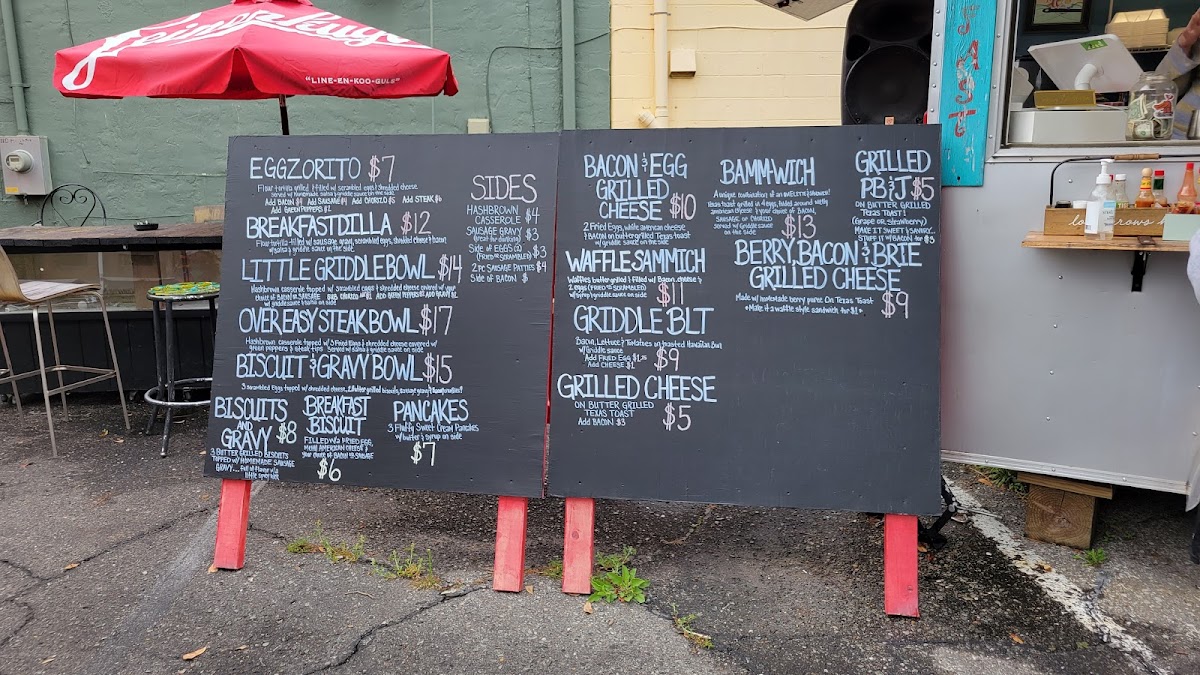 Leinenkugel's
"LINE-EN-KOO-GULS"
EGGZORITO $7
Flour tortilla grilled & filled w/ scrambled eggs & shredded cheese
served w/ homemade salsa & griddle sauce on the side
Add Bacon $4 Add Sausage $4 Add Chorizo $5 Add STEAK $6
Add Green Peppers $1
BREAKFASTDILLA $12
Flour tortilla filled w/ sausage gravy, scrambled eggs, shredded cheese & bacon
w/ salsa & griddle sauce on side
LITTLE GRIDDLE BOWL $14
Hashbrown casserole topped w/ scrambled eggs & shredded cheese covered w/ your
choice of BACON OR SAUSAGE
w/ griddle sauce & on side
OVER EASY STEAK BOWL $17
Hashbrown casserole topped w/ 3 Fried Eggs & shredded cheese covered w/
green peppers & steak tips Served w/ salsa & griddle sauce on side
BISCUIT & GRAVY BOWL $15
3 scrambled Eggs topped w/ shredded cheese, 2 butter grilled biscuits, sausage gravy &
BISCUITS
AND
GRAVY $8
3 BUTTER GRILLED BISCUITS
TOPPED W/ HOMEMADE SAUSAGE
GRAVY... full of flavor w/a
little spicy kick
BREAKFAST
BISCUIT
FILLED W/a FRIED EGG,
AMERICAN CHEESE &
your choice of BACON OR SAUSAGE
$6
PANCAKES
3 Fluffy Sweet Cream Pancakes
w/ butter & syrup on side
$7
SIDES
HASHBROWN
CASSEROLE $4
SAUSAGE GRAVY $3
(great for dunking)
Side of EGGS (2) $3
(FRIED OR SCRAMBLED)
2 PC SAUSAGE PATTIES $4
Side of BACON $
BACON & EGG
GRILLED
CHEESE $10
2 Fried Eggs, white american cheese
& Bacon on butter grilled Texas toast
w/ griddle sauce on the side
WAFFLE SAMMICH
Waffles butter grilled & filled w/ Bacon, cheese &
2 eggs (FRIED OR SCRAMBLED)
w/ syrup & griddle sauce on side
$11
GRIDDLE BLT
Bacon, Lettuce & Tomatoes on toasted Hawaiian Bun
w/ Griddle sauce
Add FRIED EGG $1.75
Add CHEESE $1
$9
GRILLED CHEESE
ON BUTTER GRILLED
TEXAS TOAST
Add BACON $3
$5
BAMMWICH
A unique combination of an OMELETTE & SANDWICH!
Texas toast grilled in 4 eggs, folded around melty
american cheese & your choice of BACON,
SAUSAGE OR CHORIZO
served w/ griddle sauce
on the side
$13
GRILLED
PB&J $5
ON BUTTER GRILLED
TEXAS TOAST!
(Grape OR Strawberry)
MAKE IT SWEET & SAVORY...
STUFF IT W/ BACON for $3
BERRY, BACON & BRIE
GRILLED CHEESE
Made w/ homemade berry puree On Texas Toast
* Make it a waffle style sandwich for $1 *
$9